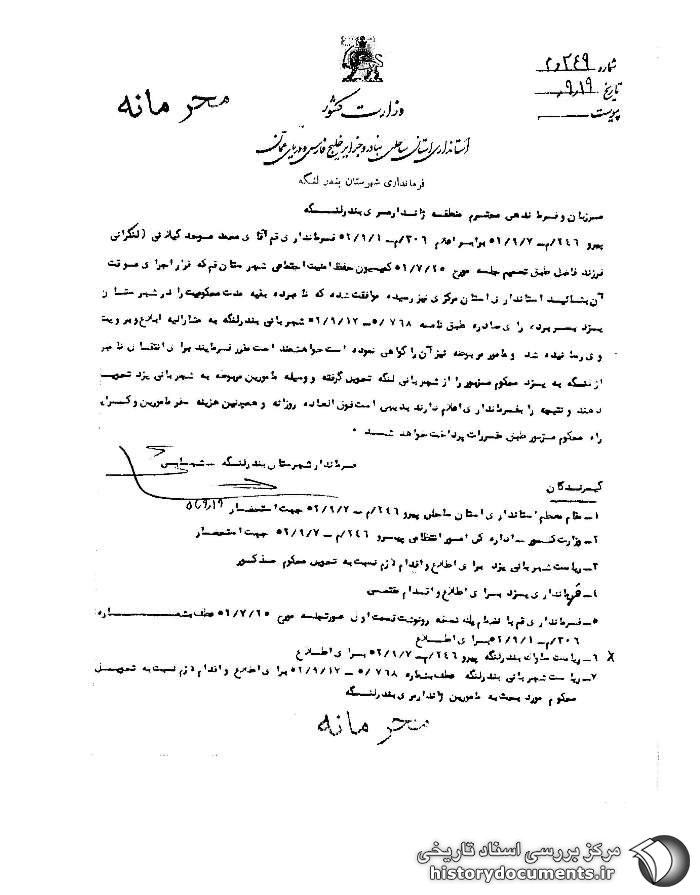 شماره ۲۴۹ر۲
تاریخ ۹ر۱۹
پیوست
محرمانه
وزارت کشور
استانداری استان ساحلی بنادر و جزایر خلیج فارس و دریای عمان
فرمانداری شهرستان بندر لنگه
مرزبان و فرماندهی محترم منطقه ژاندارمری بندرلنگه
پیرو ۲۴۶/م-۵۲/۹/۷ برابر اعلام ۳۰۶/م-۵۲/۹/۱ فرمانداری قم آقای محمد موحد گیلانی (لنگرانی
فرزند فاضل طبق تصمیم جلسه مورخ ۵۲/۷/۲۵ کمیسیون حفظ امنیت اجتماعی شهرستان قم که قرار اجرای موقت
آن بتائید استانداری استان مرکزی نیز رسیده موافقت شده که نامبرده بقیه مدت محکومیت را در شهرستان
یزد بسر برد، رای صادره طبق نامه ۵/۷۶۸-۵۲/۹/۱۲ شهربانی بندرلنگه به مشارالیه ابلاغ و برویت
وی رسانیده شد و مامور مربوطه نیز آن را گواهی نموده است خواهشمند است مقرر فرمایند برای انتقال نامبر
از لنگه به یزد محکوم مزبور را از شهربانی لنگه تحویل گرفته و وسیله مامورین مربوطه به شهربانی یزد تحویل
دهند و نتیجه را بفرمانداری اعلام دارند بدیهی است فوق العاده روزانه و همچنین هزینه سفر مامورین و کرایه
راه محکوم مزبور طبق مقررات پرداخت خواهد شد .
فرماندار شهرستان بندرلنگه -
گیرندگان
۱- مقام معظم استانداری استان ساحلی پیرو ۲۴۶/م-۵۲/۹/۷ جهت استحضار
۲- وزارت کشور - اداره کل امور انتظامی پیرو ۲۴۶/م-۵۲/۹/۷ جهت استحضار
۳- ریاست شهربانی یزد برای اطلاع و اقدام لازم نسبت به تحویل محکوم مذکور
۴- فرمانداری یزد برای اطلاع و اقدام مقتضی
۵- فرمانداری قم با انضمام یک نسخه رونوشت قسمت اول صورتجلسه مورخ ۵۲/۷/۲۵ عطف بشماره
۳۰۶/م-۵۲/۹/۱ برای اطلاع
۶- ریاست ساواک بندرلنگه پیرو ۲۴۶/م-۵۲/۹/۷ برای اطلاع
۷- ریاست شهربانی بندرلنگه عطف بشماره ۵/۷۶۸-۵۲/۹/۱۲ برای اطلاع و اقدام لازم نسبت به تحویل
محکوم مورد بحث به مامورین ژاندارمری بندرلنگه
محرمانه
مرکز بررسی اسناد تاریخی
historydocuments.ir